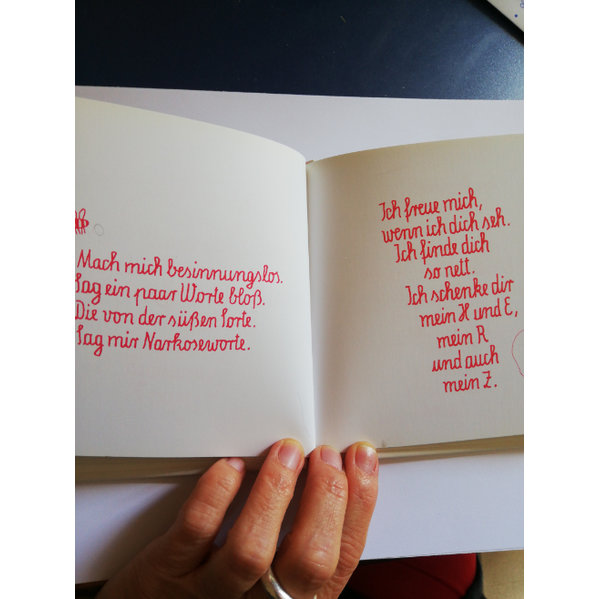 Mach mich besinnungslos.
Sag ein paar Worte bloß.
Die von der süßen Sorte.
Sag mir Narkoseworte.
Ich freue mich,
wenn ich dich seh.
Ich finde dich
so nett.
Ich schenke dir
mein H und E,
mein R
und auch
mein Z.